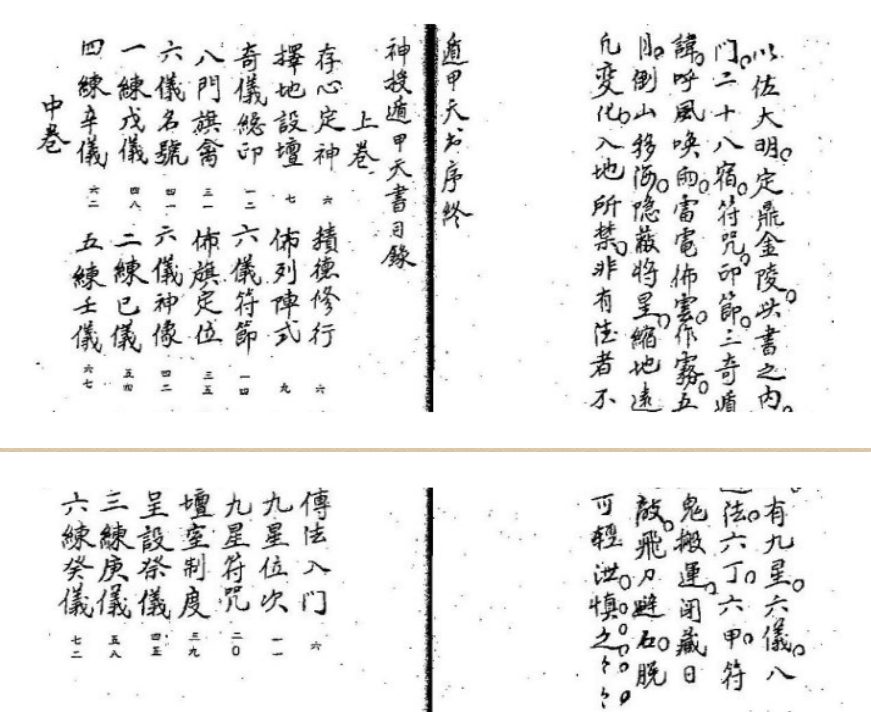 以佐大明。定鼎金陵。此書之内。
門。二十八宿。符咒。印節。三奇遁
諱。呼風喚雨。雷電佈雲。作霧。五
月。倒山移海。隐蔽將星。縮地遠
凡變化。入地所禁。非有法者不
遁甲天書序終
神授遁甲天書目錄
上卷
存心定神 六 積德修行 六
擇地設壇 七 佈列陣式 九
奇儀總印 一二 六儀符節 一四
八門旗禽 三一 佈旗定位 三五
六儀名號 四一 六儀神像 四二
一練戊儀 四八 二練已儀 五四
四練辛儀 六二 五練壬儀 六七
中卷
有九星。六儀。八
法。六丁。六甲。符
鬼搬運。閉藏日
敵。飛刀避石。脫
可輕洩。慎。之。〻。〻。
傳法入門 六
九星位次 一一
九星符咒 二〇
壇室制度 三九
呈設祭儀 四五
三練庚儀 五八
六練癸儀 七二